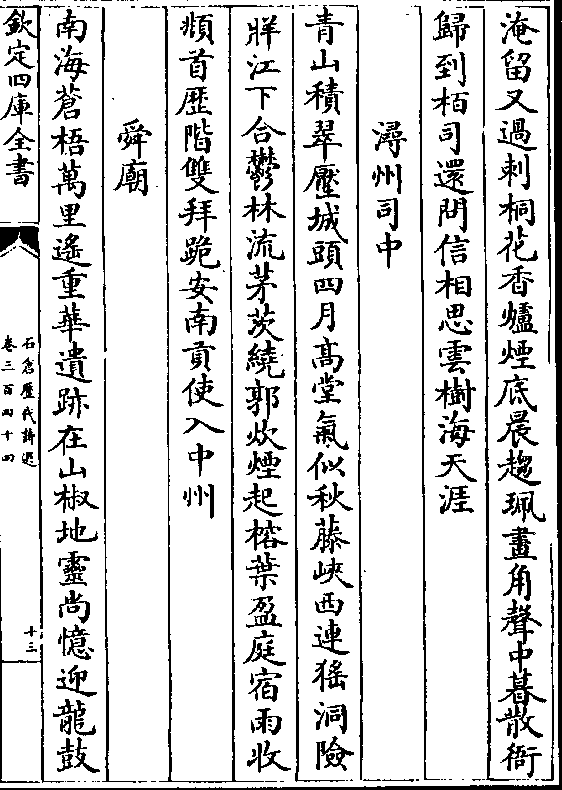 淹留又過刺桐花香爐煙底晨趨珮畫角聲中暮散衙
歸到栢司還問信相思雲樹海天涯
潯州司中
青山積翠壓城頭四月髙堂氣似秋藤峽西連猺洞險
牂江下合鬱林流茅茨繞郭炊煙起榕葉盈庭宿雨收
頫首歴階雙拜跪安南貢使入中州
舜廟
南海蒼梧萬里遙重華遺跡在山椒地靈尚憶迎龍鼓
欽定四庫全書
石倉歴代詩選
卷三百四十四
十三